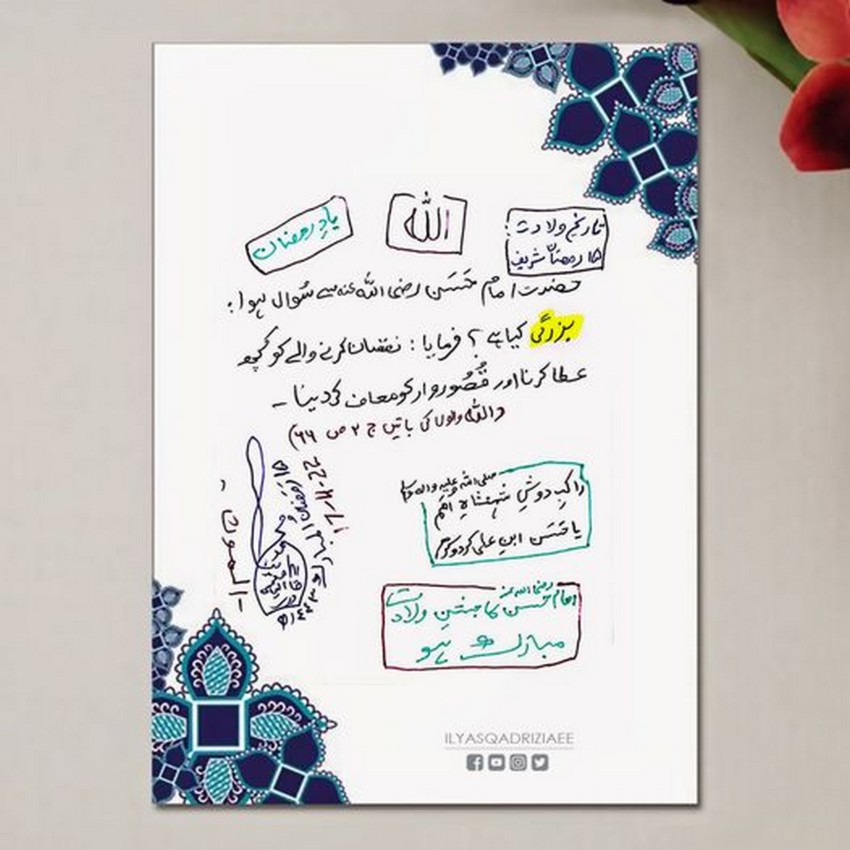 تاریخِ ولادت:
۱۵ رمضان شریف
الله
یادِ رمضان
حضرت امام حَسَن رضی اللہ عنہ سے سُوال ہوا:
بزرگی کیا ہے؟ فرمایا: نقصان کرنے والے کو کچھ
عطا کرنا اور قُصُور وار کو معاف کر دینا۔
(اللہ والوں کی باتیں ج ۲ ص ۶۶)
صلی اللہ علیہ والہ وسلم
راکبِ دوشِ شہنشاہِ اُمَم
یا حَسَن ابنِ علی کر دو کرم
رضی اللہ عنہ
امام حسن کا جشنِ ولادت
مبارک ہو
ILYASQADRIZIAEE